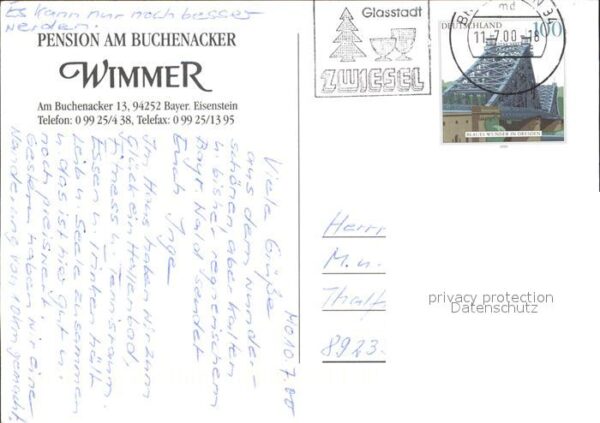 Es kann nur noch besser
werden.
PENSION AM BUCHENACKER
WIMMER
Am Buchenacker 13, 94252 Bayer. Eisenstein
Telefon: 0 99 25/4 38, Telefax: 0 99 25/13 95
Glasstadt
ZWIESEL
md
11.7.00-18
DEUTSCHLAND
100
BLAUES WUNDER IN DRESDEN
MO 10.7.00
Viele Grüße
aus dem wunder-
schönen aber kalten
u. bisher regnerischem
Bayr. Wald sendet
Euch Inge
Im Haus haben wir zum
Glück ein Hallenbad,
Fitness u. Tennisraum.
Essen u. Trinken hält
Leib u. Seele zusammen
u. das ist hier gut u.
noch preiswert.
Gestern haben wir eine
Wanderung von 10 km gemacht.
Herrn
M. u.
Thalf
8923
privacy protection
Datenschutz